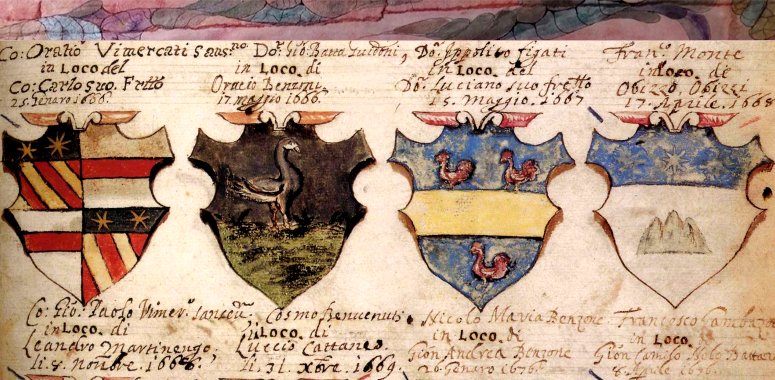 Co: Oratio Vimercati Sans.no
in Loco del
Co: Carlo suo Frtto
25 Genaro 1666.
Do: Gio: Batta
in Loco. di
Oratio Benzoni
17 maggio 1666.
Do: Ippolito figati
in Loco del
Do: Luciano suo fretto
15. Maggio. 1667
Fran.o Monte
in Loco. di
Obizzo. Obizzi
17. Aprile. 1668
Co: Gio: Paolo Vimer.i
in Loco. di
Leandro Martinengo,
li 8. Nonbre. 1668.
Cosmo Benvenuti
in Loco. di
Luccio Cattaneo
li 31. Xbre. 1669.
Nicolo Maria Benzone
in Loco. di
Gion Andrea Benzone
26 Genaro 1676.
Francesco
in Loco.
Gion Batta
8 Aprle. 1676.